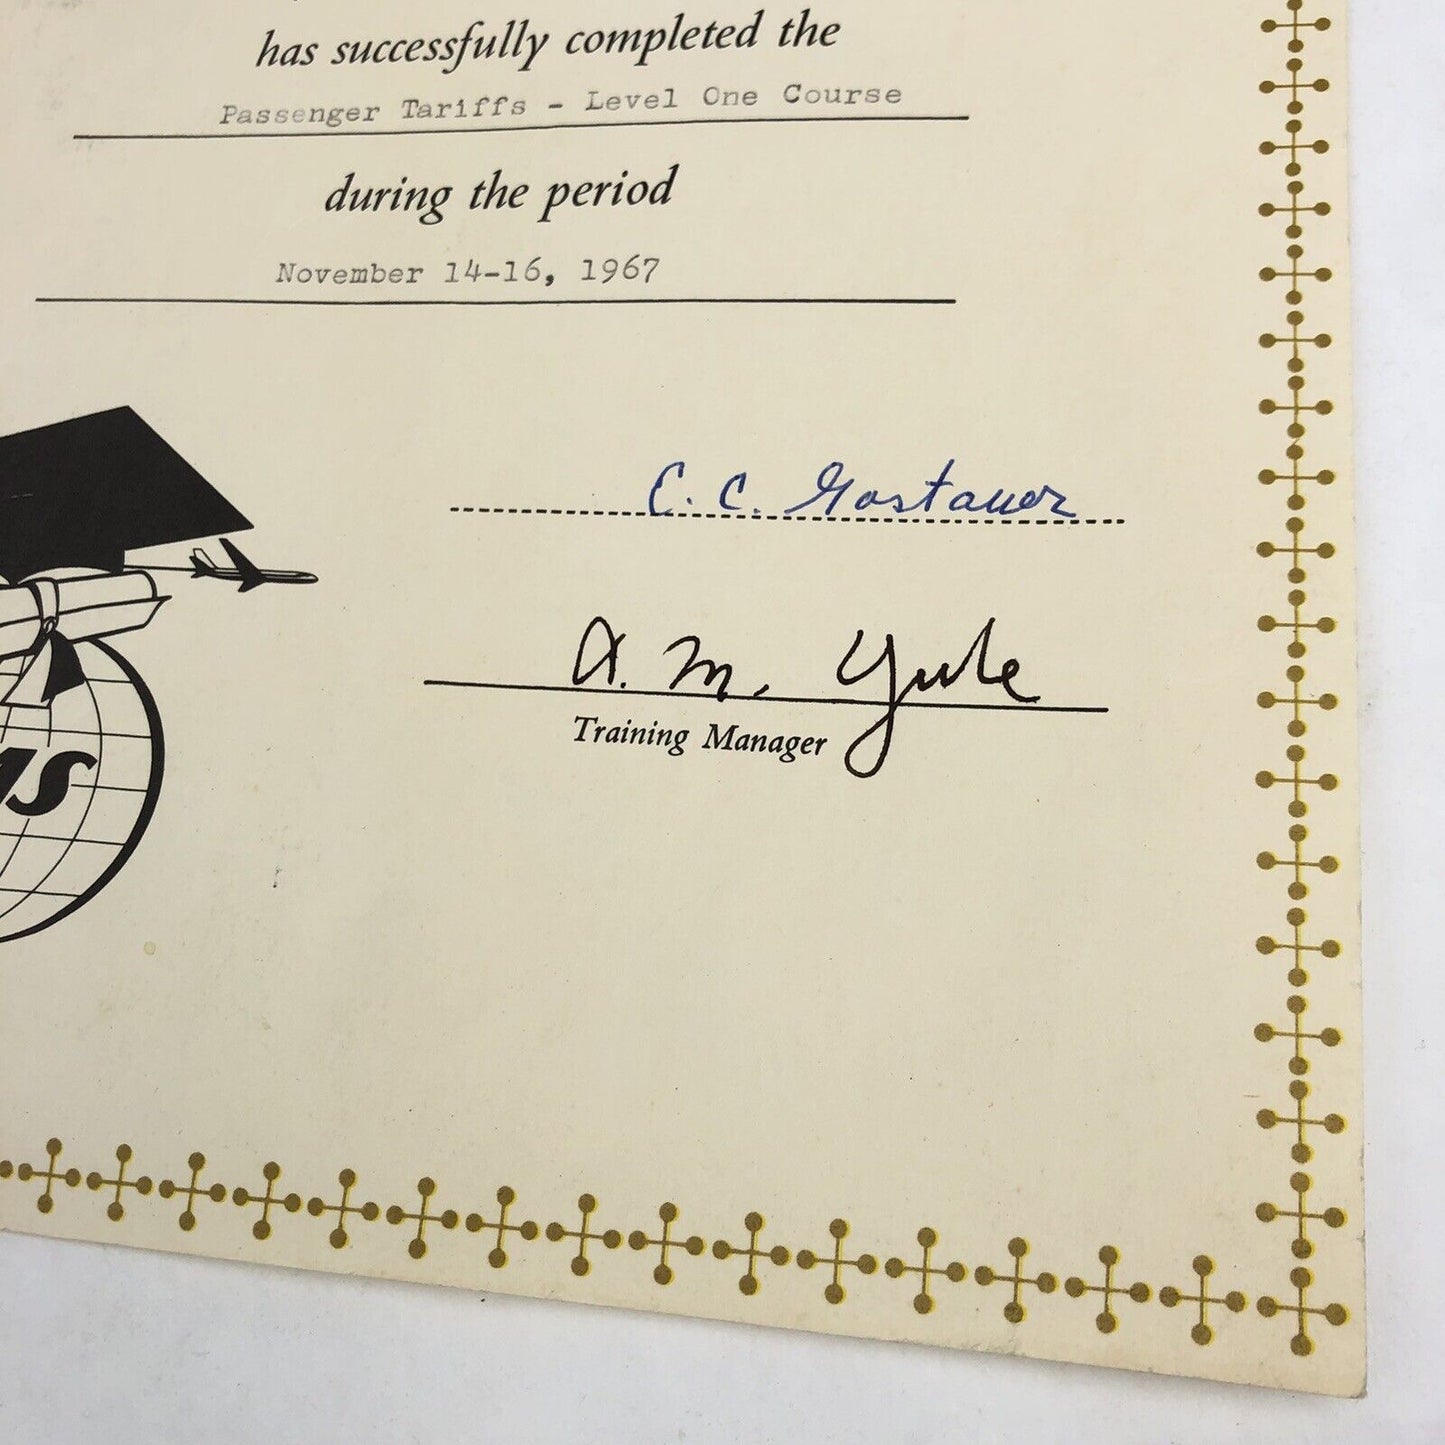 has successfully completed the
Passenger Tariffs - Level One Course
during the period
November 14-16, 1967
C. C. Gostauer
A. M. Yule
Training Manager
AS